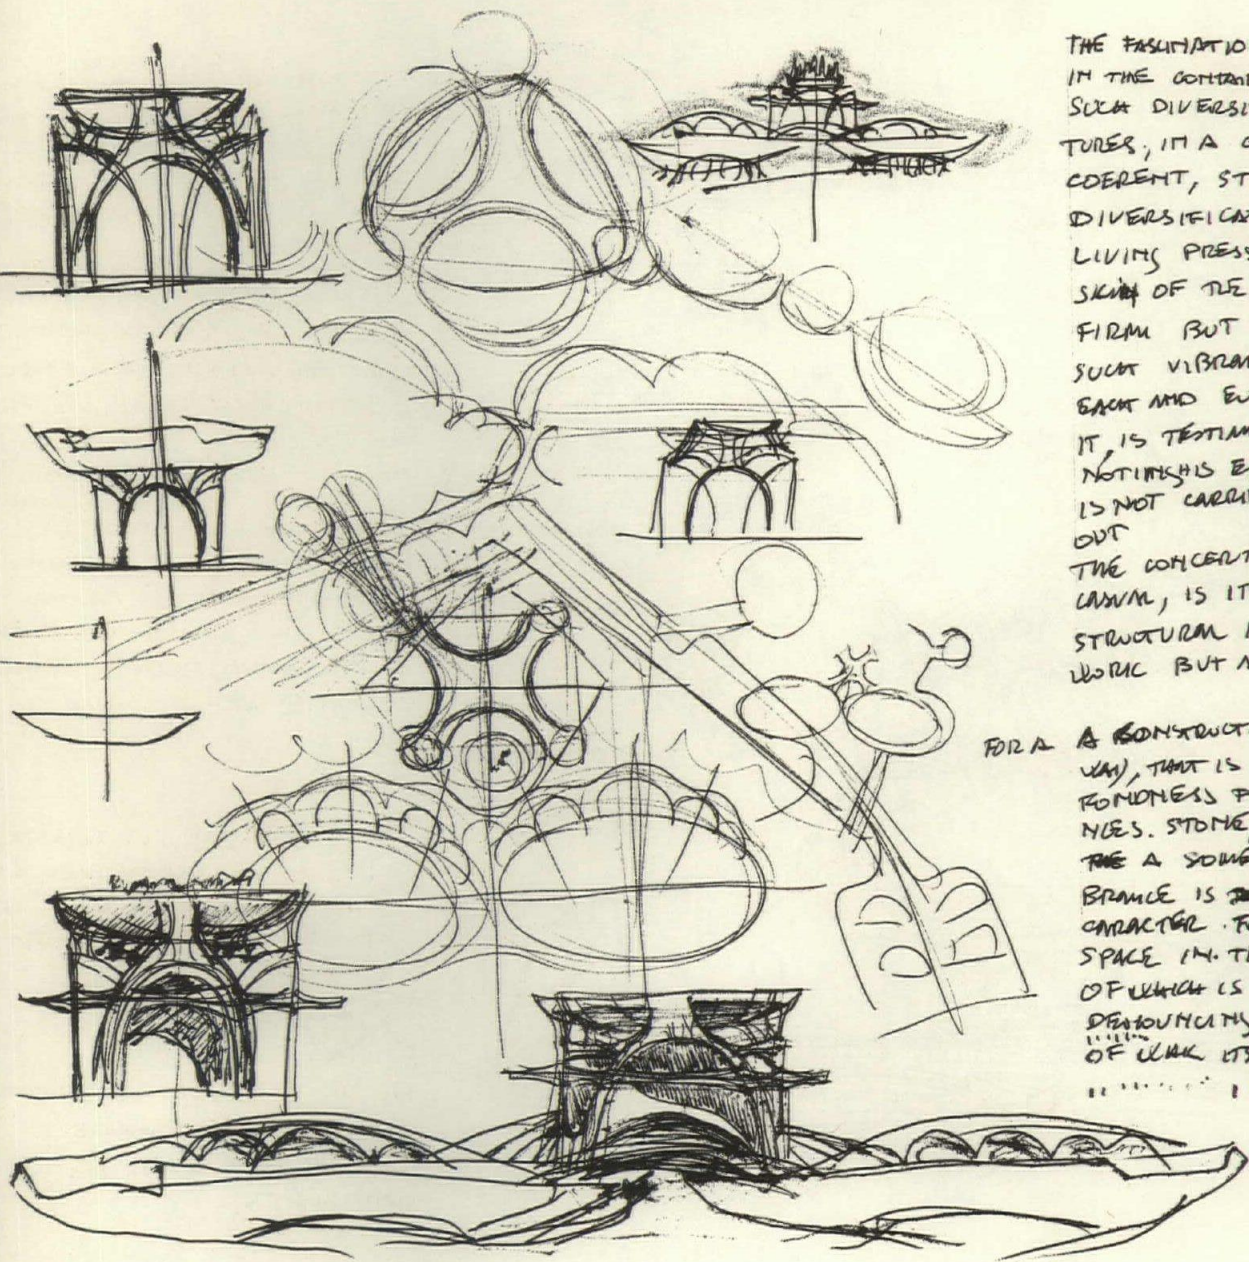 THE FASCINATIO
IN THE CONTAI
SUCH DIVERSI
TURES, IN A C
COERENT, ST
DIVERSIFICA
LIVING PRESS
SKIN OF THE
FIRM BUT
SUCH VIBRA
EACH AND EV
IT, IS TESTIM
NOTHING IS E
IS NOT CARRI
OUT
THE CONCERT
CASUAL, IS IT
STRUCTURAL
WORK BUT
FOR A A CONSTRUCT
WAY, THAT IS
FONDNESS
NCES. STONE
A SOME
BRANCE IS
CARACTER. F
SPACE IN. T
OF WHICH IS
DENOUNCING
OF WAR ITS